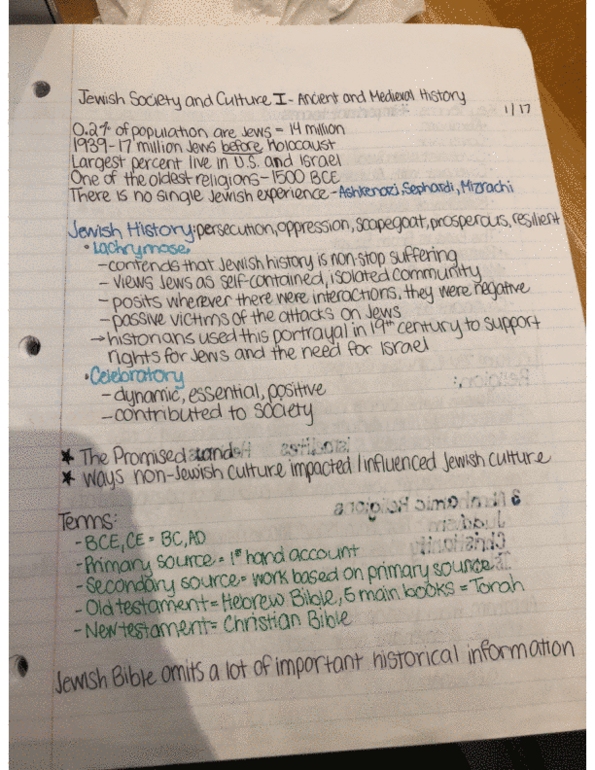 Jewish Society and Culture I - Ancient and Medieval History
1/17
0.2% of population are Jews = 14 million
1939-17 million Jews before Holocaust
Largest percent live in U.S. and Israel
One of the oldest religions-1500 BCE
There is no single Jewish experience-Ashkenazi, Sephardi, Mizrachi
Jewish History: persecution, oppression, scapegoat, prosperous, resilient
• Lachrymose
- contends that Jewish history is non-stop suffering
- views Jews as self-contained, isolated community
- posits wherever there were interactions, they were negative
- passive victims of the attacks on Jews
→ historians used this portrayal in 19th century to support
rights for Jews and the need for Israel
• Celebratory
- dynamic, essential, positive
- contributed to society
★ The Promised
★ Ways non-Jewish culture impacted/influenced Jewish culture
Terms:
- BCE, CE = BC, AD
- Primary source = 1st hand account
- Secondary source = work based on primary source
- Old testament = Hebrew Bible, 5 main books = Torah
- New testament = Christian Bible
Jewish Bible omits a lot of important historical information